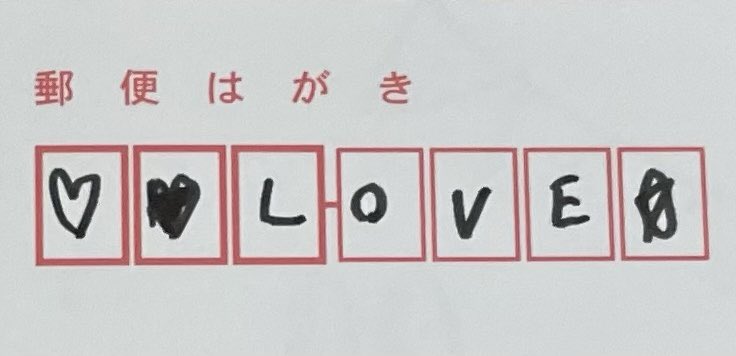 郵便はがき
♡♥LOVE